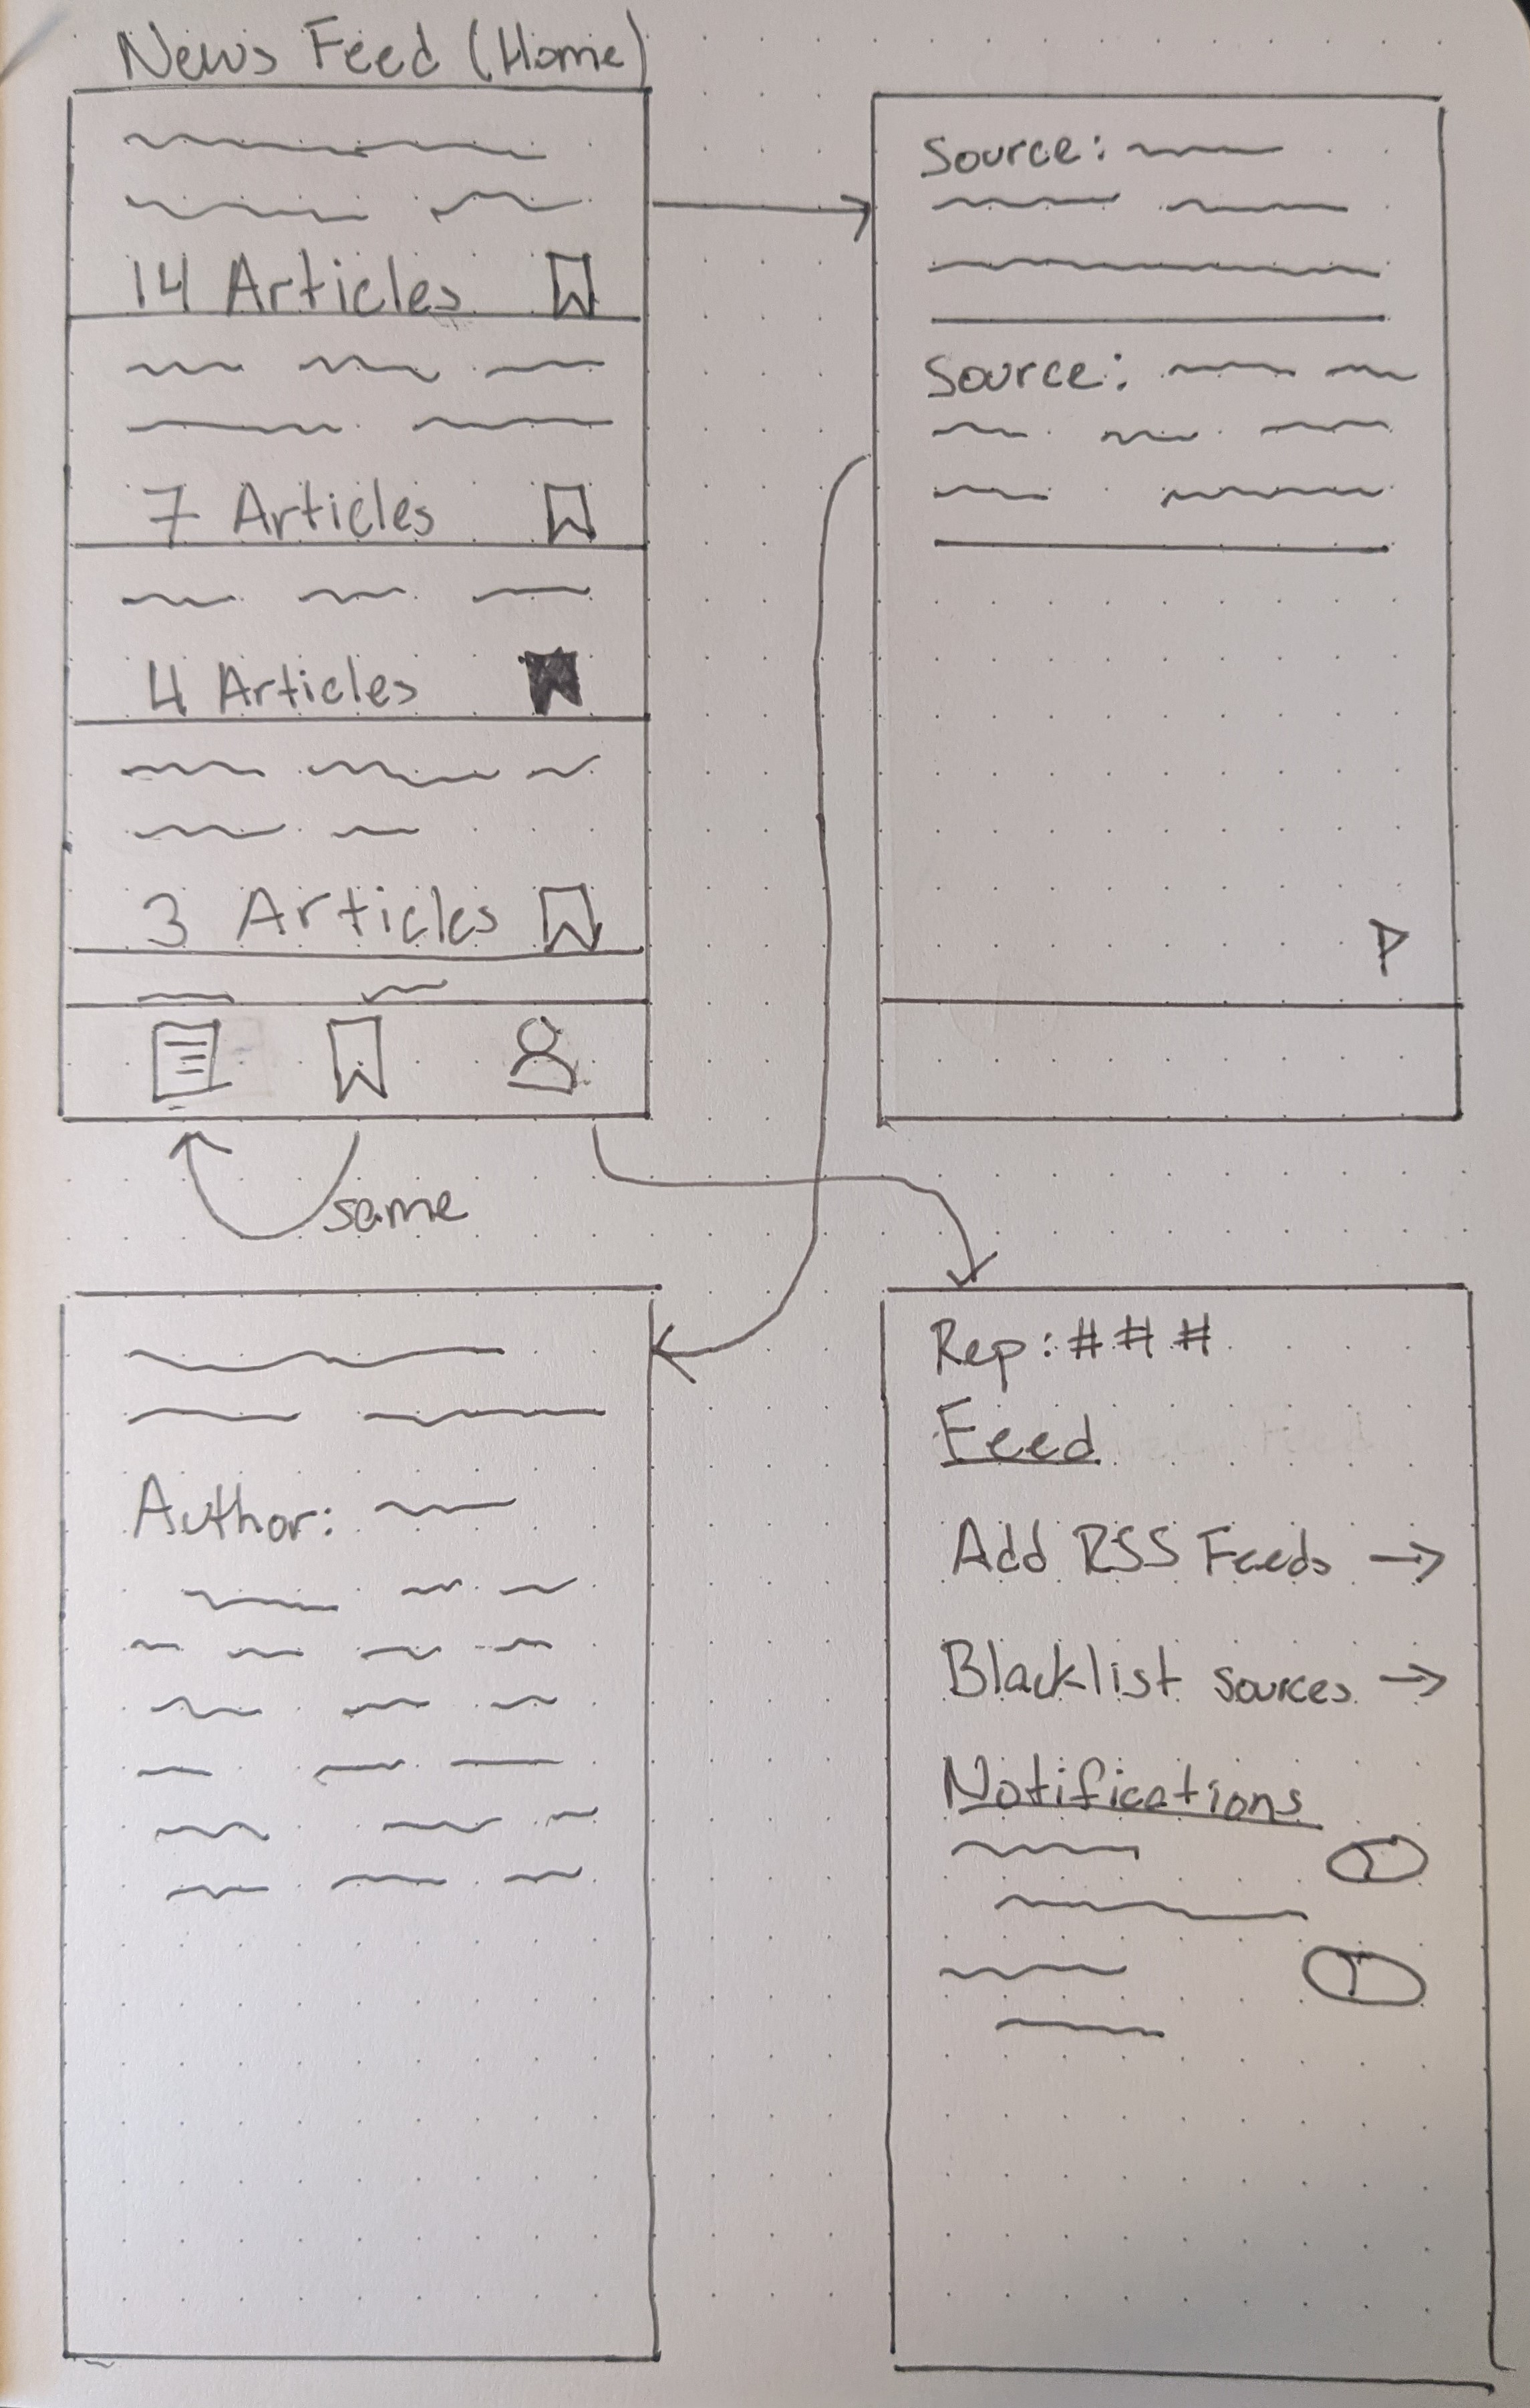 News Feed (Home)
14 Articles
7 Articles
4 Articles
3 Articles
same
Source:
Source:
Author:
Rep: # # #
Feed
Add RSS Feeds →
Blacklist sources →
Notifications